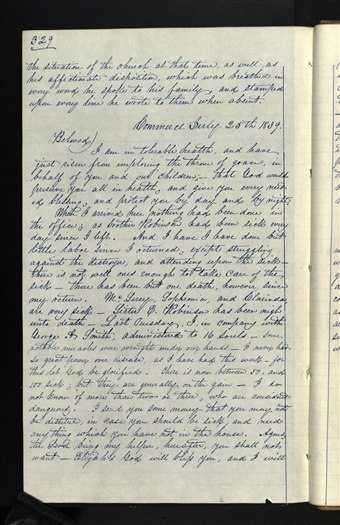 329
the situation of the church at that time, as well as
his affectionate disposition, which was breathed in
every word he spoke to his family, and stamped
upon every line he wrote to them when absent.
Commerce July 25th 1839.
Beloved)
I am in tolerable health, and have
just risen from imploring the throne of grace, in
behalf of you and our children; that God would
preserve you all in health, and give you every need-
ed blessing, and protect you by day and by night.
When I arrived here nothing had been done in
the office; as brother Robinson had been sick every
day since I left. And I have done but
little labor since I returned, except struggling
against the destroyer, and attending upon the sick—
there is not well ones enough to take care of the
sick — there has been but one death, however since
my return. McLerey, Sophronia, and Clarinda
are very sick — Sister E. Robinson has been nigh
unto death — Last Tuesday, I, in company with
George A. Smith, administered to 16 souls — some
notable miracles were wrought under our hands — I never had
so great power over disease, as I have had this week — for
this let God be glorified. There is now between 50, and
100 sick; but they are generally on the gain — I do
not know of more than two or three, who are considered
dangerous. I send you some money that you may not
be destitute, in case you should be sick, and need
any thing which you have not in the house. Agnes
the Lord being my helper, hereafter, you shall not
want — Elijah's God will bless you, and I will